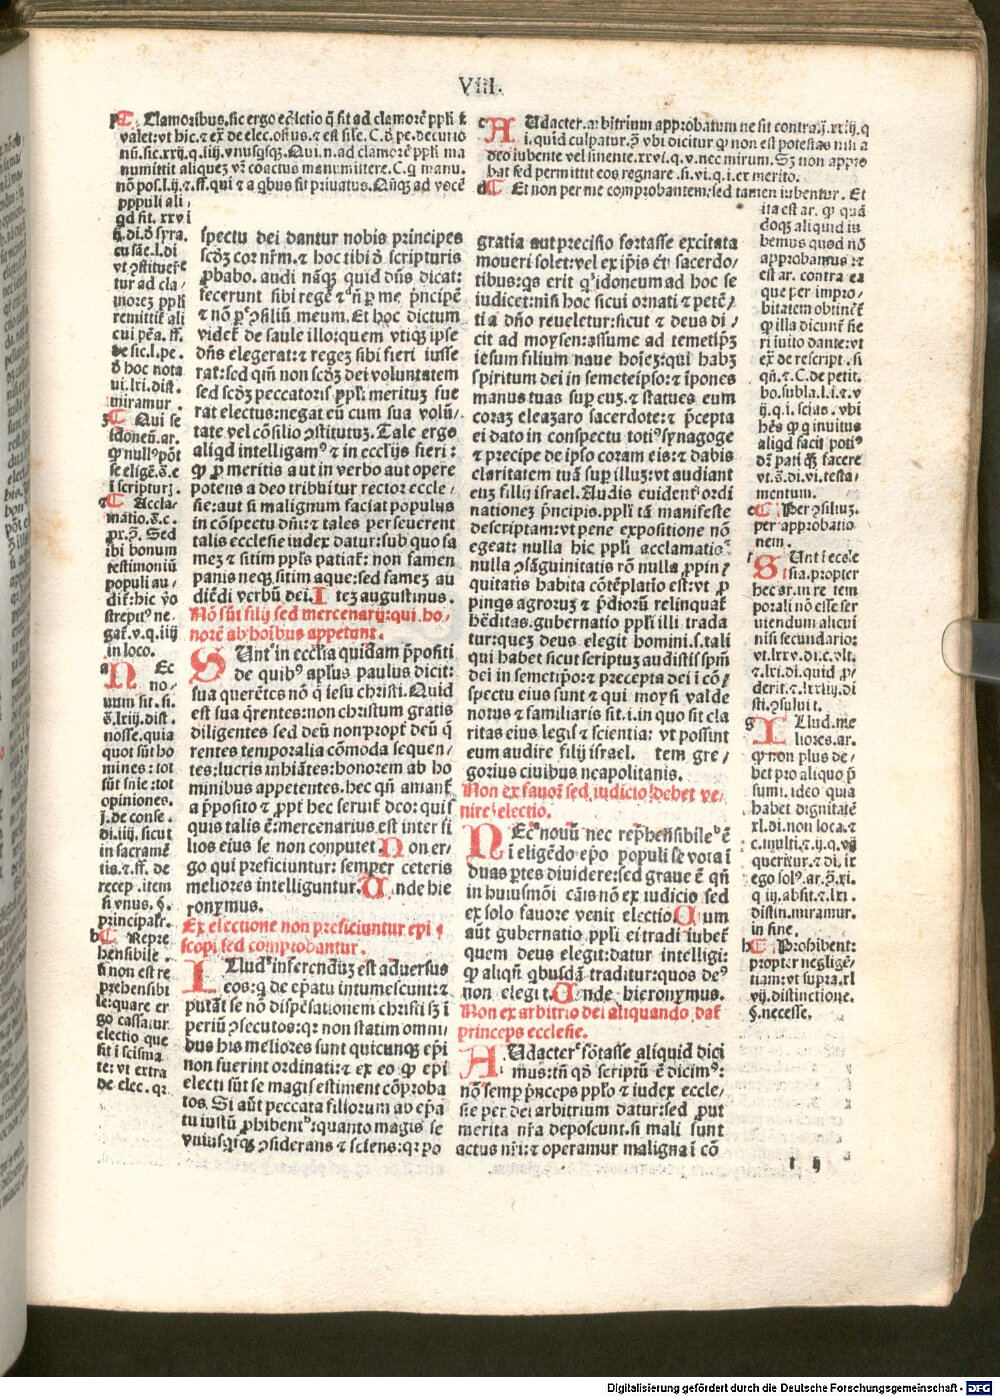 VIII.
Clamoribus. sic ergo eĉlctio q̄ fit ad clamorē ppłi ť
valet: vt hic. ⁊ ex̄ de elec. osiꝰ. ⁊ est sile. C. ð pe. decurio
nū. sic. xxij. q. iiij. vnusqisqꝫ. Qui. n. ad clamorē ppłi ma
numittit aliqueꝫ vr̄ coactus manumittere. C. q manu.
nō pos. l. ij. ⁊. ff. qui ⁊ a qbus fit priuatus. Nūqꝫ ad vocē
pppuli ali
qd fit. xxvi
ij. di. ð syra.
cusāe. l. di
vt ꝯstituere
tur ad cla
moreꝫ ppłi
remittit̄ ali
cui pēa. ff.
de sic. l. pe.
ð hoc nota
ui. lxi. dist.
miramur.
Qui se
idoneū. ar.
ꝙ nullꝰ pōt
se eligē. s̄. e
i scripturꝫ.
Accla
matio. s̄. c.
px. ꝫ. Sed
ibi bonum
testimoniū
populi au
dit̄: hic ṽo
strepitꝰ ne
gat̄. v. q. iiij
in loco.
Nec
no
uum sit. si.
s̄. lxiij. dist.
nosse. quia
quot sūt ho
mines: tot
sūt snīe: tot
opiniones.
j. de conse.
di. iiij. sicut
in sacramē
tis. ⁊ ff. de
recep. item
si vnus. §.
principalr̄.
Repre
hensibile.
si non est re
prehensibi
le: quare er
go cassatur
electio que
fit i scisma
te: vt extra
de elec. qr
spectu dei dantur nobis principes
scdꝫ cor nr̄m. ⁊ hoc tibi ð scripturis
ꝓbabo. audi nāqꝫ quid dn̄s dicat:
fecerunt sibi regē ⁊ ñ ꝑ me pn̄cipē
⁊ nō ꝑ ꝯsiliū meum. Et hoc dictum
videt̄ de saule illo: quem vtiqꝫ ipse
dn̄s elegerat: ⁊ regeꝫ sibi fieri iusse
rat: sed qm̄ non scdꝫ dei voluntatem
sed scdꝫ peccatoris ppłi merituꝫ fue
rat electus: negat eū cum sua volū
tate vel cōsilio ꝯstitutuꝫ. Tale ergo
aliqd intelligamꝰ ⁊ in ecclijs fieri:
ꝙ ꝓ meritis aut in verbo aut opere
potens a deo tribuitur rector eccle
sie: aut si malignum faciat populus
in cōspectu dn̄i: ⁊ tales perseuerent
talis ecclesie iudex datur: sub quo fa
meꝫ ⁊ sitim ppłs patiat̄: non famen
panis neqꝫ sitim aque: sed fameꝫ au
diēdi verbū dei. I teꝫ augustinus.
Nō sūt filij sed mercenarij: qui ho
norē ab hoibus appetunt.
Sunt in ecclīa quidam ppositi
de quibꝰ apłus paulus dicit:
sua querētes nō q̄ iesu christi. Quid
est sua q̄rentes: non christum gratis
diligentes sed deū non propt̄ deū q̄
rentes temporalia cōmoda sequen
tes: lucris inhiātes: honorem ab ho
minibus appetentes. hec qn̄ amant̄
a pposito ⁊ ppt̄ hec seruit̄ deo: quis
quis talis ē: mercenarius est inter fi
lios eius se non conputet. Non er
go qui preficiuntur: semper ceteris
meliores intelliguntur. Unde hie
ronymus.
Ex electione non preficiuntur epi
scopi sed comprobantur.
Illud inferenduꝫ est aduersus
eos: q de epatu intumescunt: ⁊
putāt se nō dispēsationem christi sꝫ i
periū ꝯsecutos: qr non statim omni
bus his meliores sunt quicunqꝫ ep̄i
non fuerint ordinati: ⁊ ex eo ꝙ epi
electi sūt se magis estiment cōproba
tos. Si aūt peccata filiorum ab epa
tu iustū phibent: quanto magis se
vnusqisqꝫ ꝯsiderans ⁊ sciens: qr po
Audacter. arbitrium approbatum ne sit contra. j. xxiij. q
i. quid culpatur. ꝫ vbi dicitur ꝙ non est potestas nisi a
deo iubente vel sinente. xxvi. q. v. nec mirum. Sꝫ non appro
bat sed permittit eos regnare. si. vi. q. i. ex merito.
Et non per me comprobantem: sed tamen iubentur. Et
ita est ar. ꝙ quā
doqꝫ aliquid iu
bemus quod nō
approbamus: ⁊
est ar. contra ea
que per impro
bitatem obtinēt̄
ꝙ illa dicunt̄ fie
ri iuito dante: vt
ex̄ de rescript. si
qn̄. ⁊. C. de petit.
bo. subla. l. i. ⁊. v
ij. q. i. scius. vbi
hēs ꝙ q inuitus
aliqd facit potiꝰ
dr̄ pati q̄ꝫ facere
vt. s̄. di. vi. testa
mentum.
Per ꝯsiliuꝫ.
per approbatio
nem.
Sunt i eccle
sia. propter
hec ar. in re tem
porali nō esse ser
uiendum alicui
nisi secundario:
vt. lxxv. di. c. vlt.
⁊. lxi. di. quid ꝓ
derit. ⁊. lxxiij. di
sti. ꝯsuluit.
Illud. me
liores. ar.
ꝙ non plus de
bet pro aliquo p̄
sumi. ideo quia
habet dignitatē
xl. di. non loca. ⁊
c. multi. ⁊. ij. q. vij
queritur. ⁊ di. ix
ego solꝰ. ar. ꝫ. xi.
q iij. absit. ⁊. lxi.
distin. miramur.
in fine.
Prohibent:
propter neglige
tiam: vt supra. xl
vij. distinctione.
§. necesse.
gratia aut precisio fortasse excitata
moueri solet: vel ex ip̄is ēt sacerdo
tibus: qs erit q idoneum ad hoc se
iudicet: nisi hoc sicui ornati ⁊ petē
tia dn̄o reueletur: sicut ⁊ deus di
cit ad moysen: assume ad temetip̄ꝫ
iesum filium naue hoieꝫ: qui habꝫ
spiritum dei in semeteipso: ⁊ ipones
manus tuas sup euꝫ. ⁊ statues eum
coraꝫ eleazaro sacerdote: ⁊ pcepta
ei dato in conspectu totiꝰ synagoge
⁊ precipe de ipso coram eis: ⁊ dabis
claritatem tuā sup illuꝫ: vt audiant
euꝫ filij israel. Audis euident̄ ordi
nationeꝫ pncipis. ppłi tā manifeste
descriptam: vt pene expositione nō
egeat: nulla hic ppłi acclamatio
nulla ꝯsāguinitatis rō nulla ꝓpin
quitatis habita cōtēplatio est: vt ꝓ
pinqs agroruꝫ ⁊ pdioruꝫ relinquat̄
hēditas. gubernatio ppłi illi trada
tur: queꝫ deus elegit homini. s. tali
qui habet sicut scriptuꝫ audistis spm̄
dei in semetipo: ⁊ precepta dei i cō
spectu eius sunt ⁊ qui moysi valde
notus ⁊ familiaris fit. i. in quo sit cla
ritas eius legis ⁊ scientia: vt possint
eum audire filij israel. tem gre
gorius ciuibus neapolitanis.
Non ex fauore sed iudicio debet ve
nire electio.
Nec nouū nec rephensibile ē
i eligēdo epo populi se vota i
duas ptes diuidere: sed graue ē qn̄
in huiusmōi cāis nō ex iudicio sed
ex solo fauore venit electio. Cum
aūt gubernatio ppłi ei tradi iubet̄
quem deus elegit: datur intelligi:
ꝙ aliqn̄ qbusdā traditur: quos deꝰ
non elegit. Unde hieronymus.
Non ex arbitrio dei aliquando dat̄
princeps ecclesie.
Audacter fōtasse aliquid dici
mus: tn̄ qð scriptū ē dicimꝰ:
nō semp pnceps pplo ⁊ iudex eccle
sie per dei arbitrium datur: sed put
merita nr̄a deposcunt. si mali sunt
actus nr̄i: ⁊ operamur maligna i cō
Digitalisierung gefördert durch die Deutsche Forschungsgemeinschaft - DFG